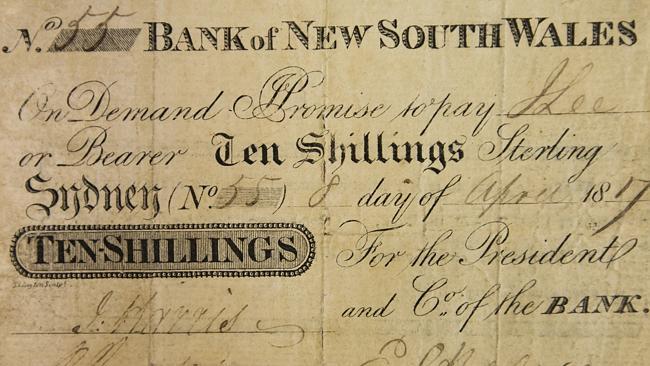 No. 55 BANK of NEW SOUTH WALES
On Demand Promise to pay J Lee
or Bearer Ten Shillings Sterling
Sydney (No. 55) 8 day of April 1817
TEN-SHILLINGS For the President
and Co. of the BANK.
J. Harris